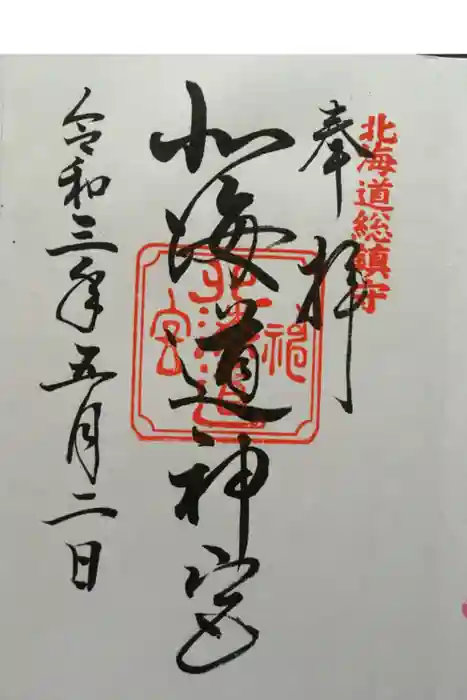 北海道総鎮守
奉拝
北海道神宮
北海道
神宮
令和三年五月二日